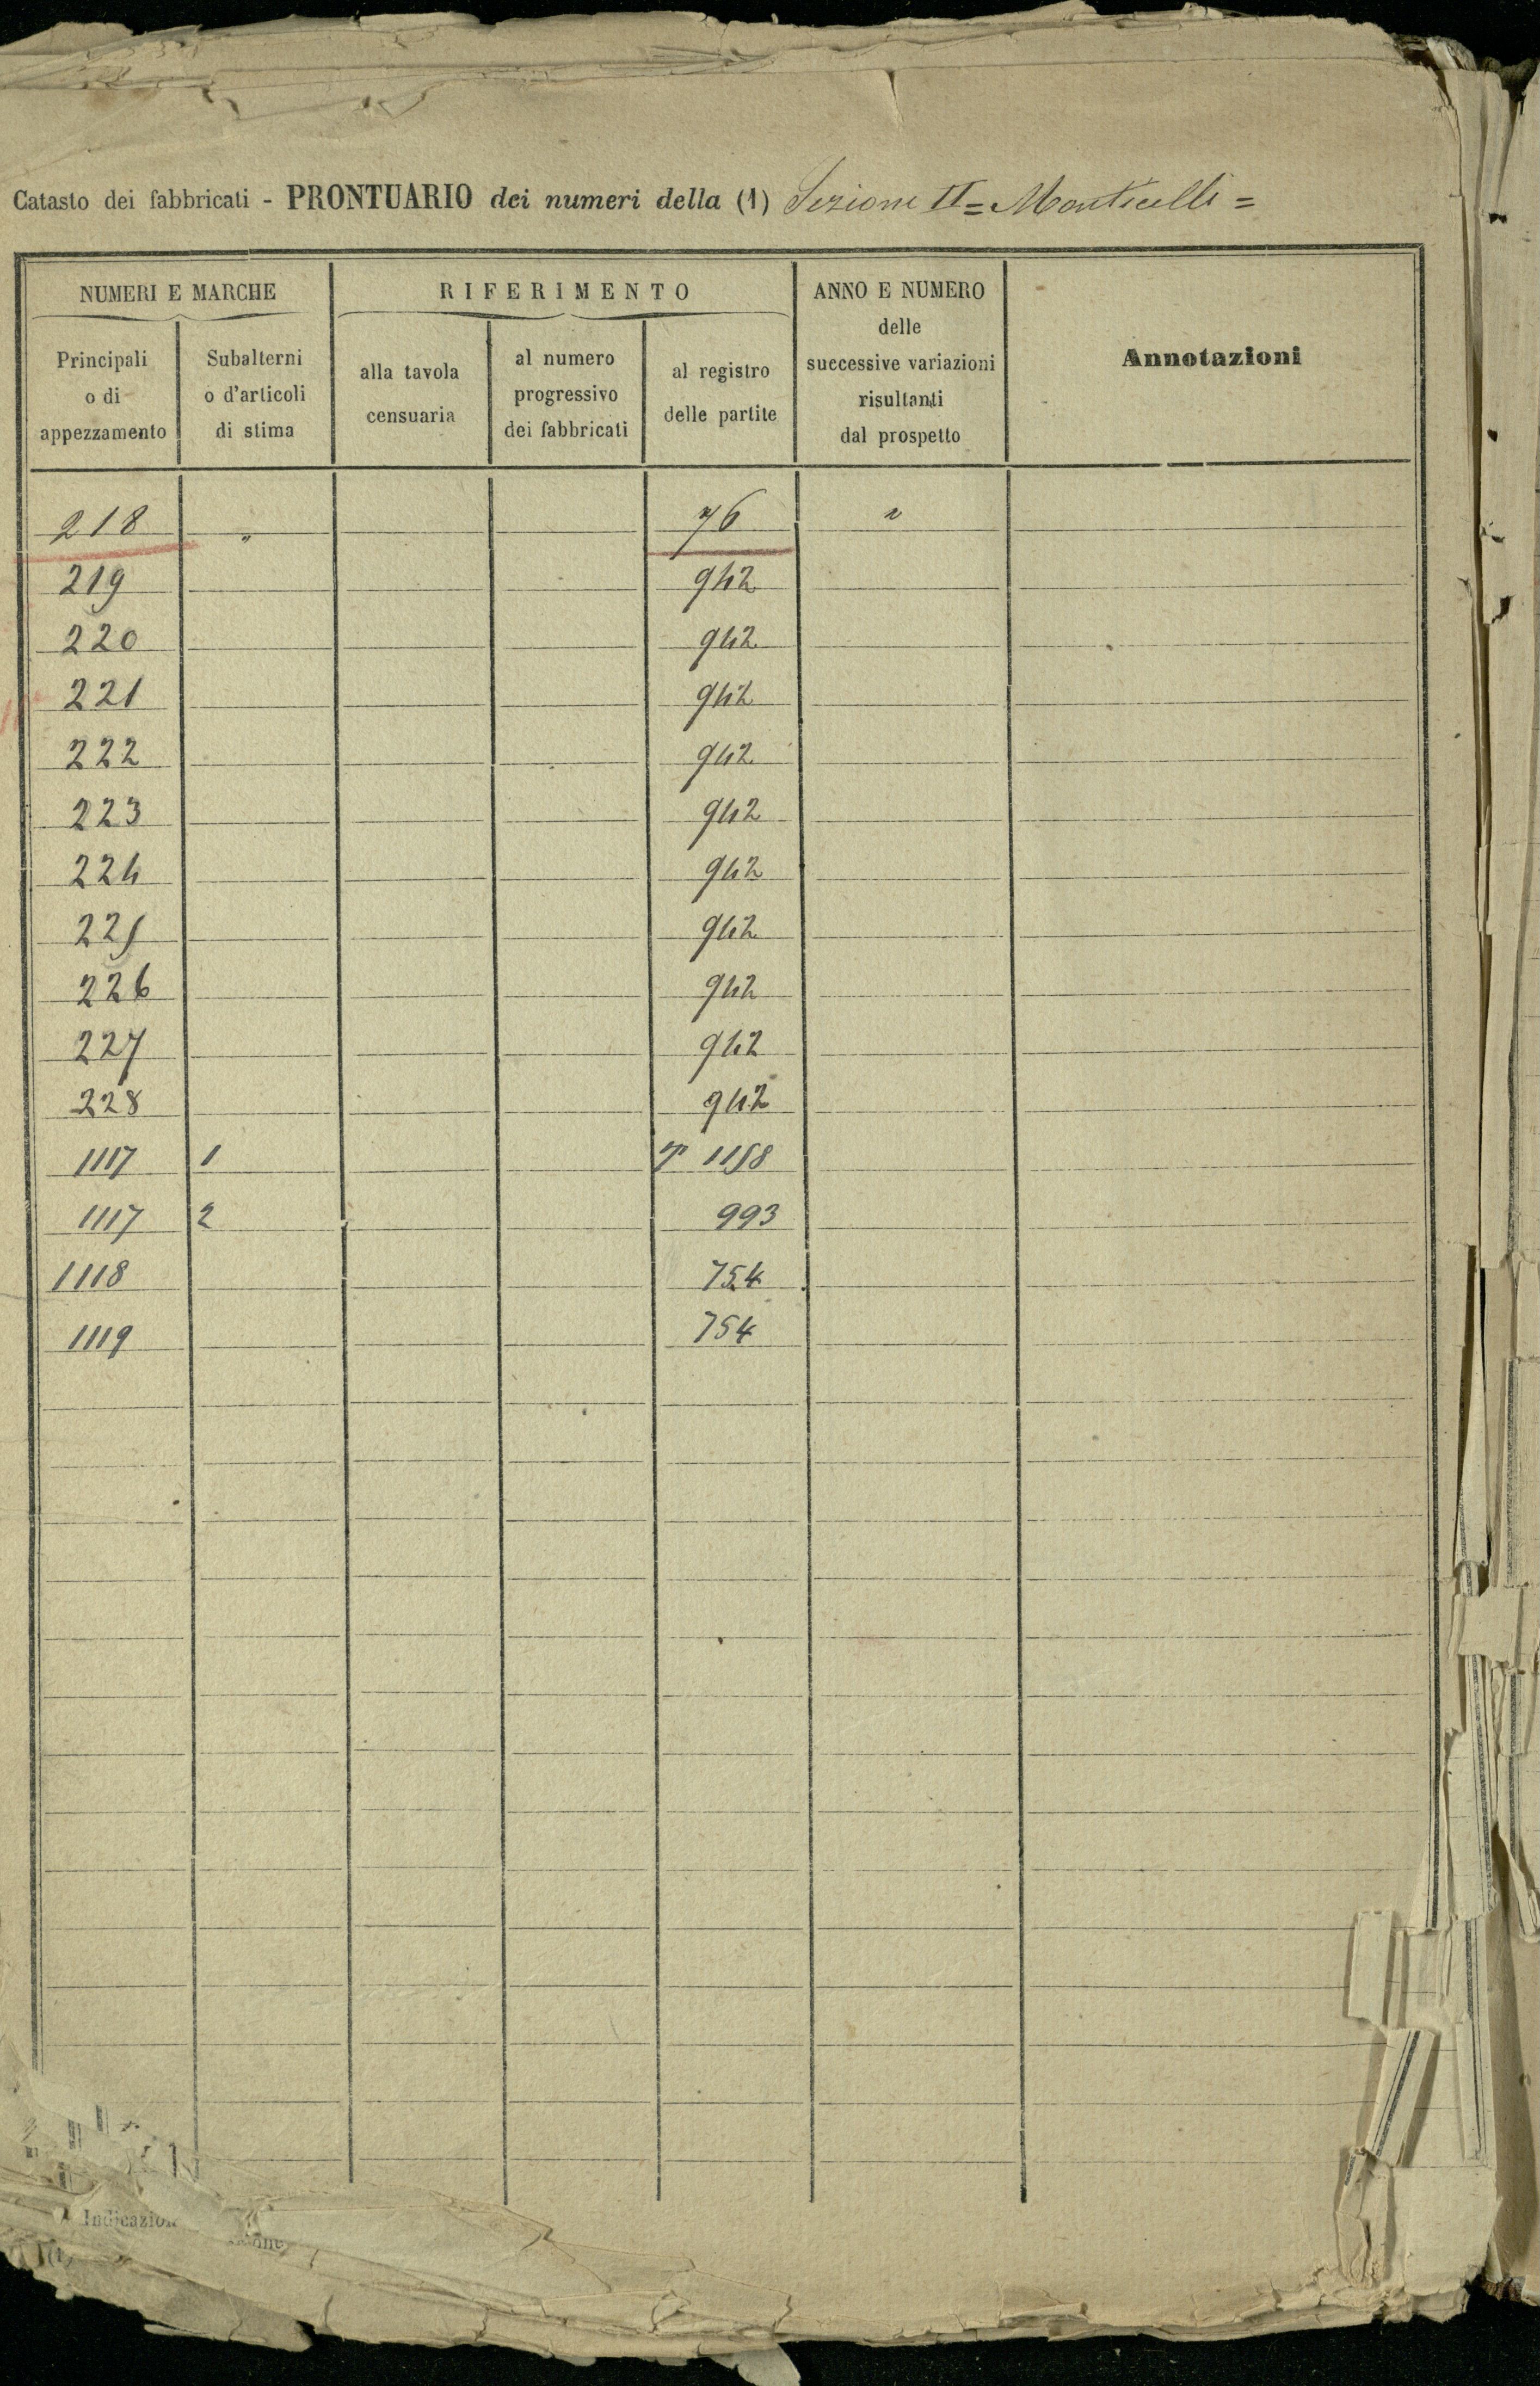 Catasto dei fabbricati - PRONTUARIO dei numeri della (1) Sezione II = Monticelli =
NUMERI E MARCHE
Principali
o di
appezzamento
Subalterni
o d'articoli
di stima
RIFERIMENTO
alla tavola
censuaria
al numero
progressivo
dei fabbricati
al registro
delle partite
ANNO E NUMERO
delle
successive variazioni
risultanti
dal prospetto
Annotazioni
218 " 76 "
219 942
220 942
221 942
222 942
223 942
224 942
225 942
226 942
227 942
228 942
1117 1 1158
1117 2 993
1118 754
1119 754
(1)